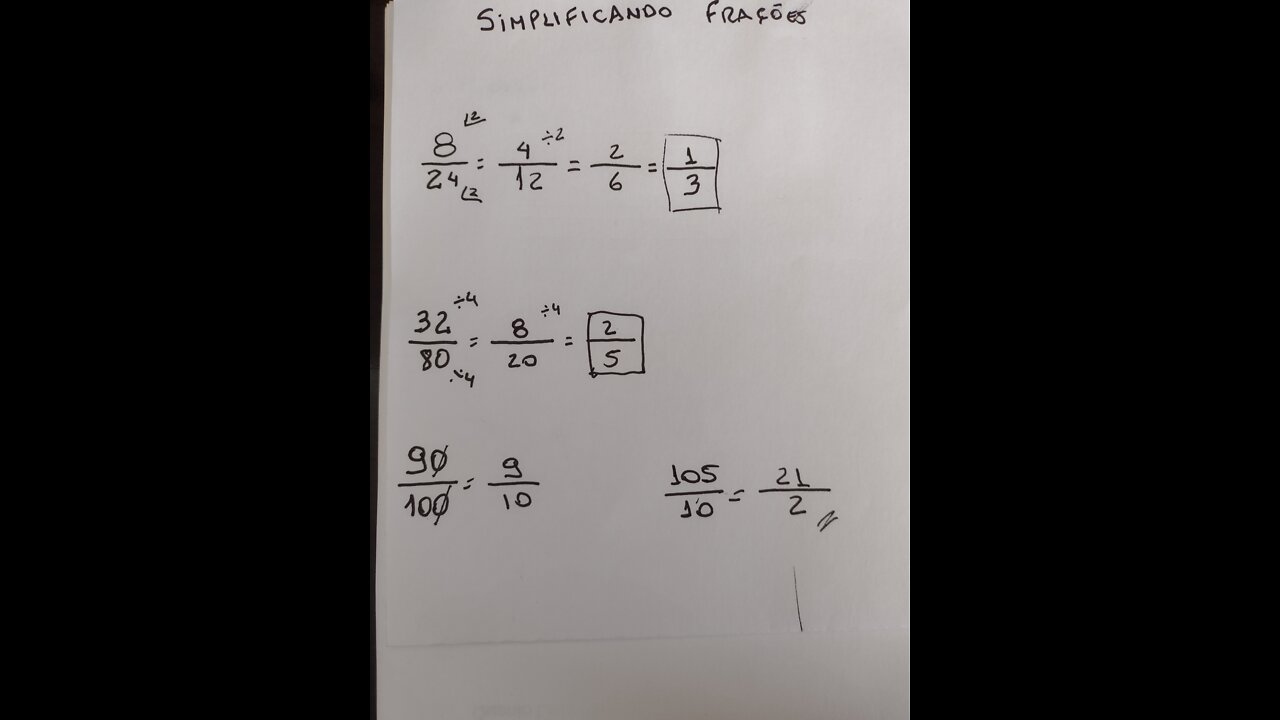 SIMPLIFICANDO FRAÇÕES
8/24 = 4/12 ÷2 = 2/6 = 1/3
32/80 ÷4 ÷4 = 8/20 ÷4 = 2/5
90/100 = 9/10
105/10 = 21/2